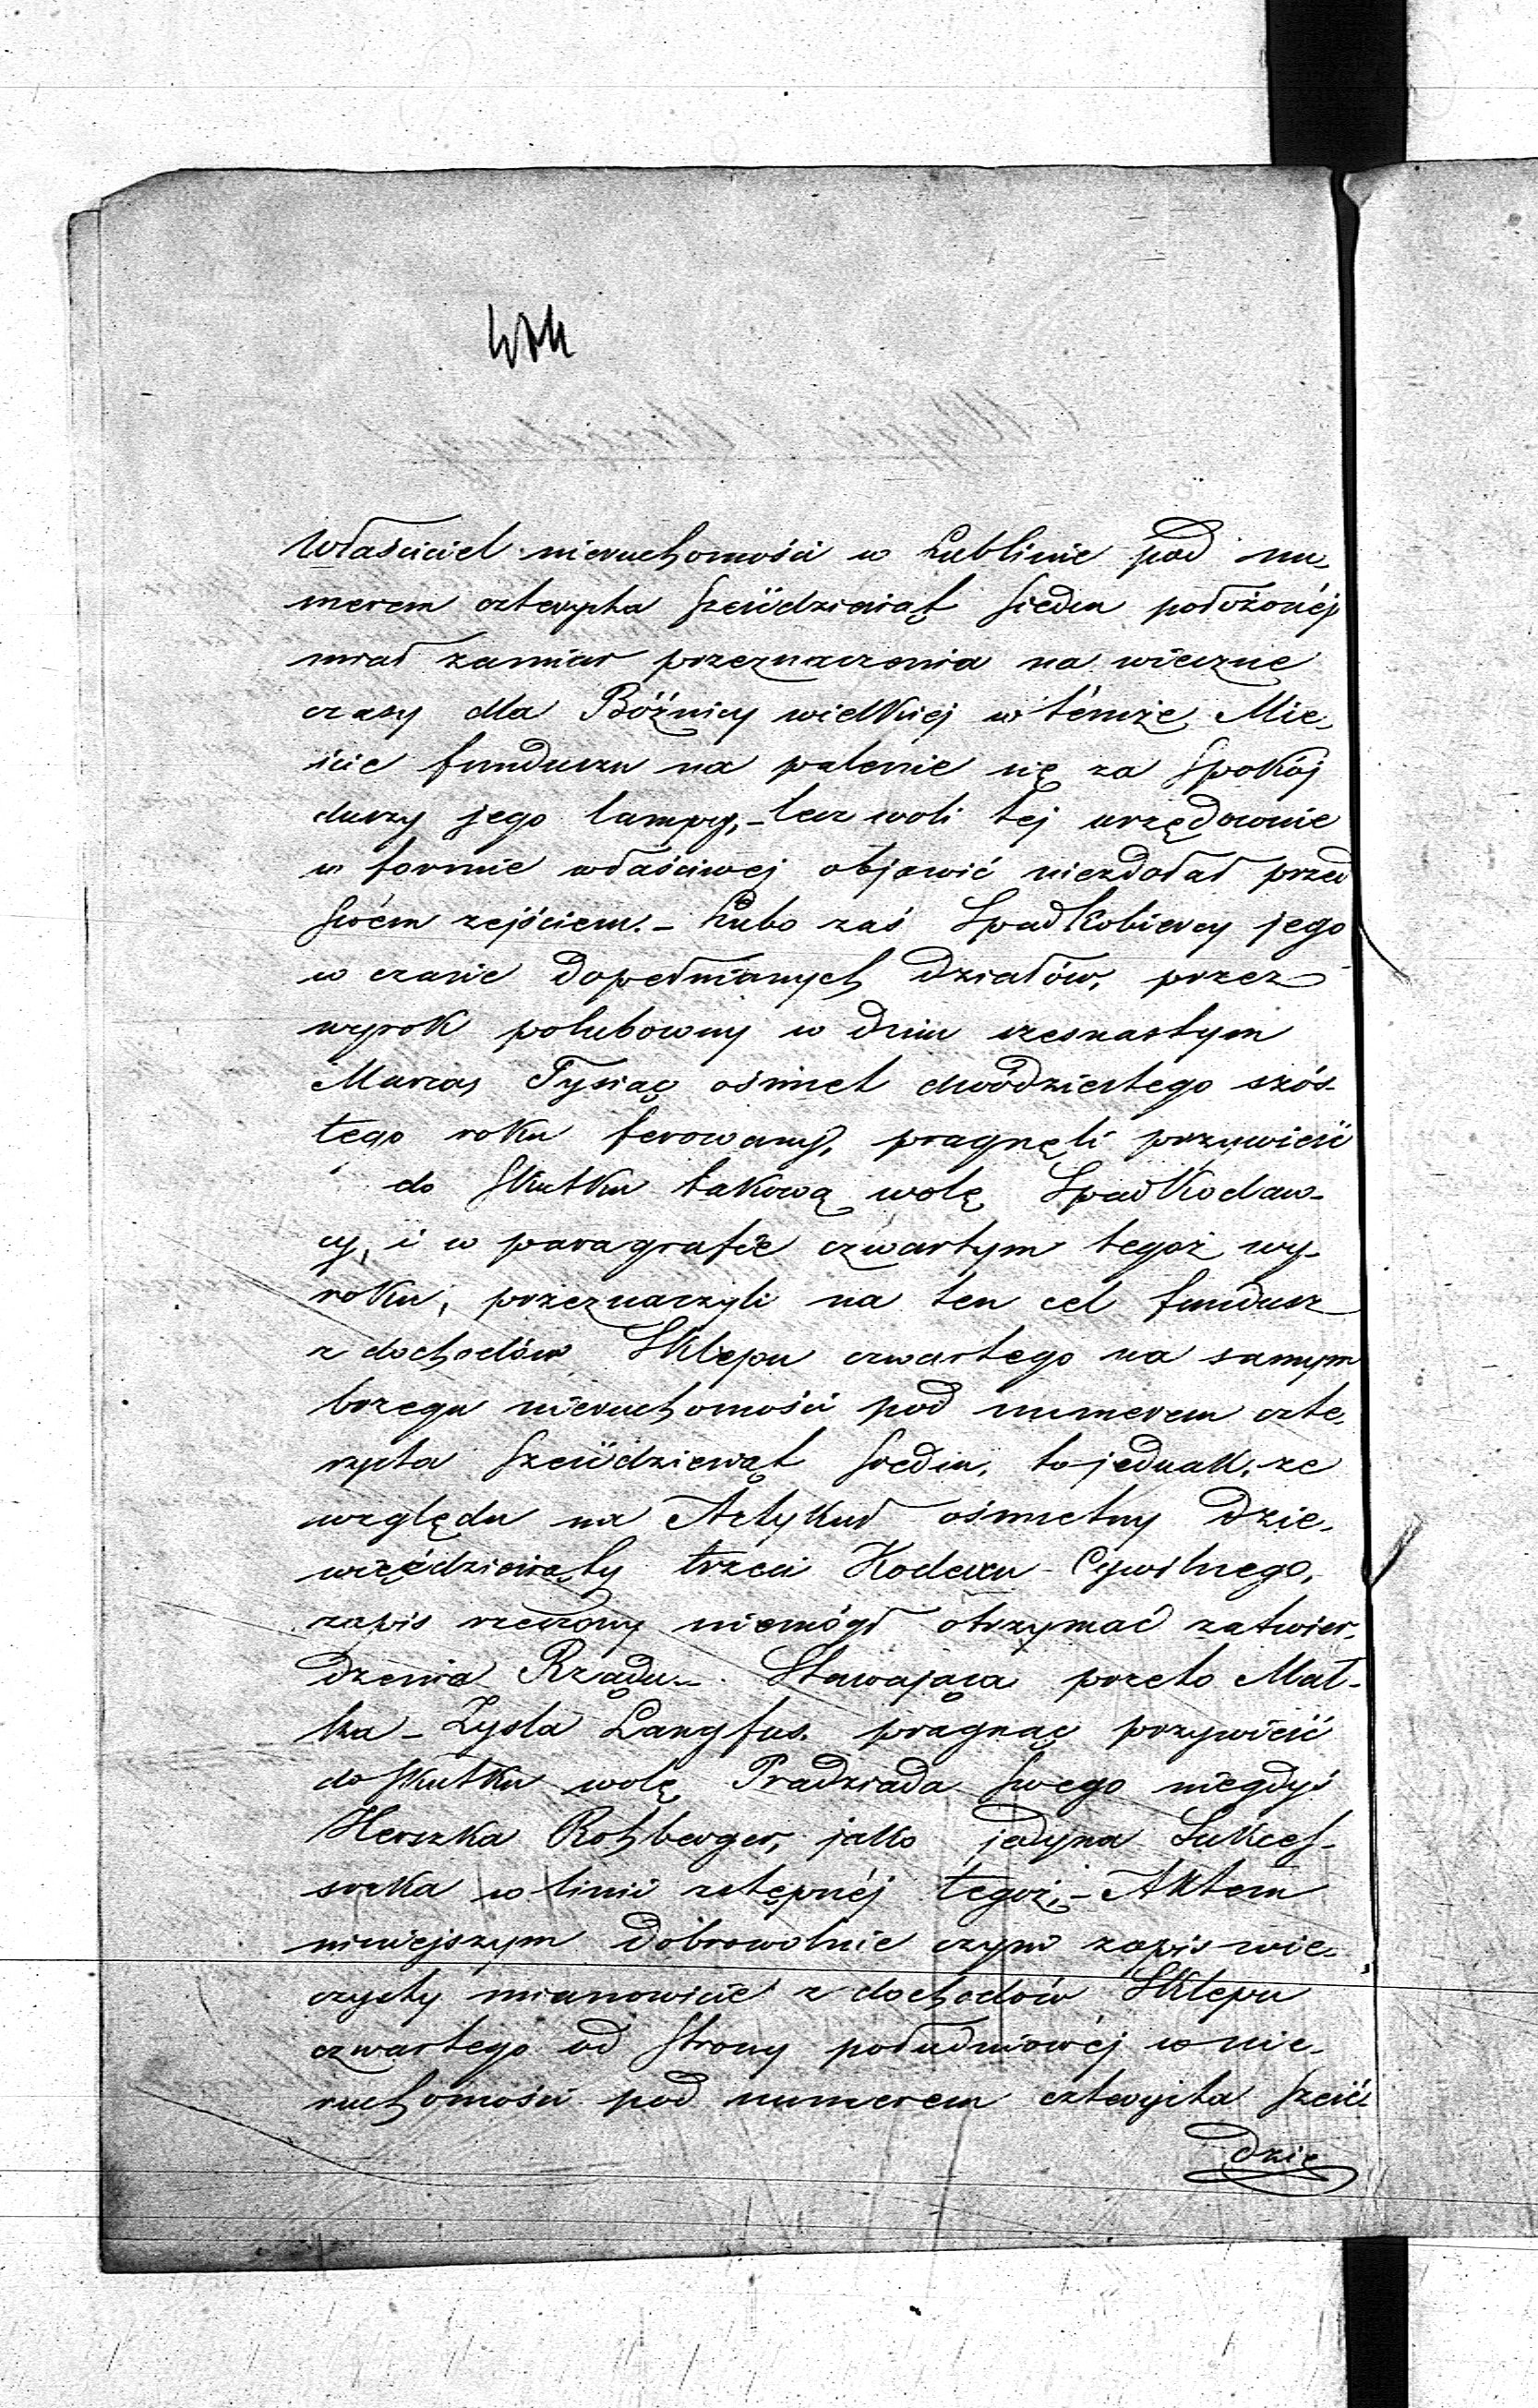 Właściciel nieruchomości w Lublinie pod nu-
merem czterysta sześćdziesiąt siedm położonéj
miał zamiar przeznaczenia na wieczne
czasy dla Bóżnicy wielkiej w témże Mie-
ście funduszu na palenie się za spokój
duszy jego lampy,- lecz woli tej urzędownie
w formie właściwej objawić niezdołał przed
swém zejściem.- Lubo zaś Spadkobiercy jego
w czasie dopełnianych działów, przez
wyrok polubowny w dniu szesnastym
Marca, Tysiąc ośmset dwódziestego szós-
tego roku ferowany, pragnęli przywieść
do skutku takową wolę Spadkodaw-
cy, i w paragrafie czwartym tegoż wy-
roku, przeznaczyli na ten cel fundusz
z dochodów Sklepu czwartego na samym
brzegu nieruchomości pod numerem czte-
rysta sześćdziesiąt siedm, to jednak, ze
względu na Artykuł ośmsetny dzie-
więćdziesiąty trzeci Kodexu Cywilnego,
zapis rzeczony niemógł otrzymać zatwier-
dzenia Rządu.- Stawająca przeto Mał-
ka - Zysla Langfus. pragnąc przywieść
do skutku wolę Pradziada swego niegdyś
Herszka Rothberger, jako jedyna Sukces-
sorka w linii zstępnéj tegoż,- Aktem
niniejszym dobrowolnie czyni zapis wie-
czysty mianowicie z dochodów Sklepu
czwartego od strony południowéj w nie-
ruchomości pod numerem czterysta sześć-
dzie